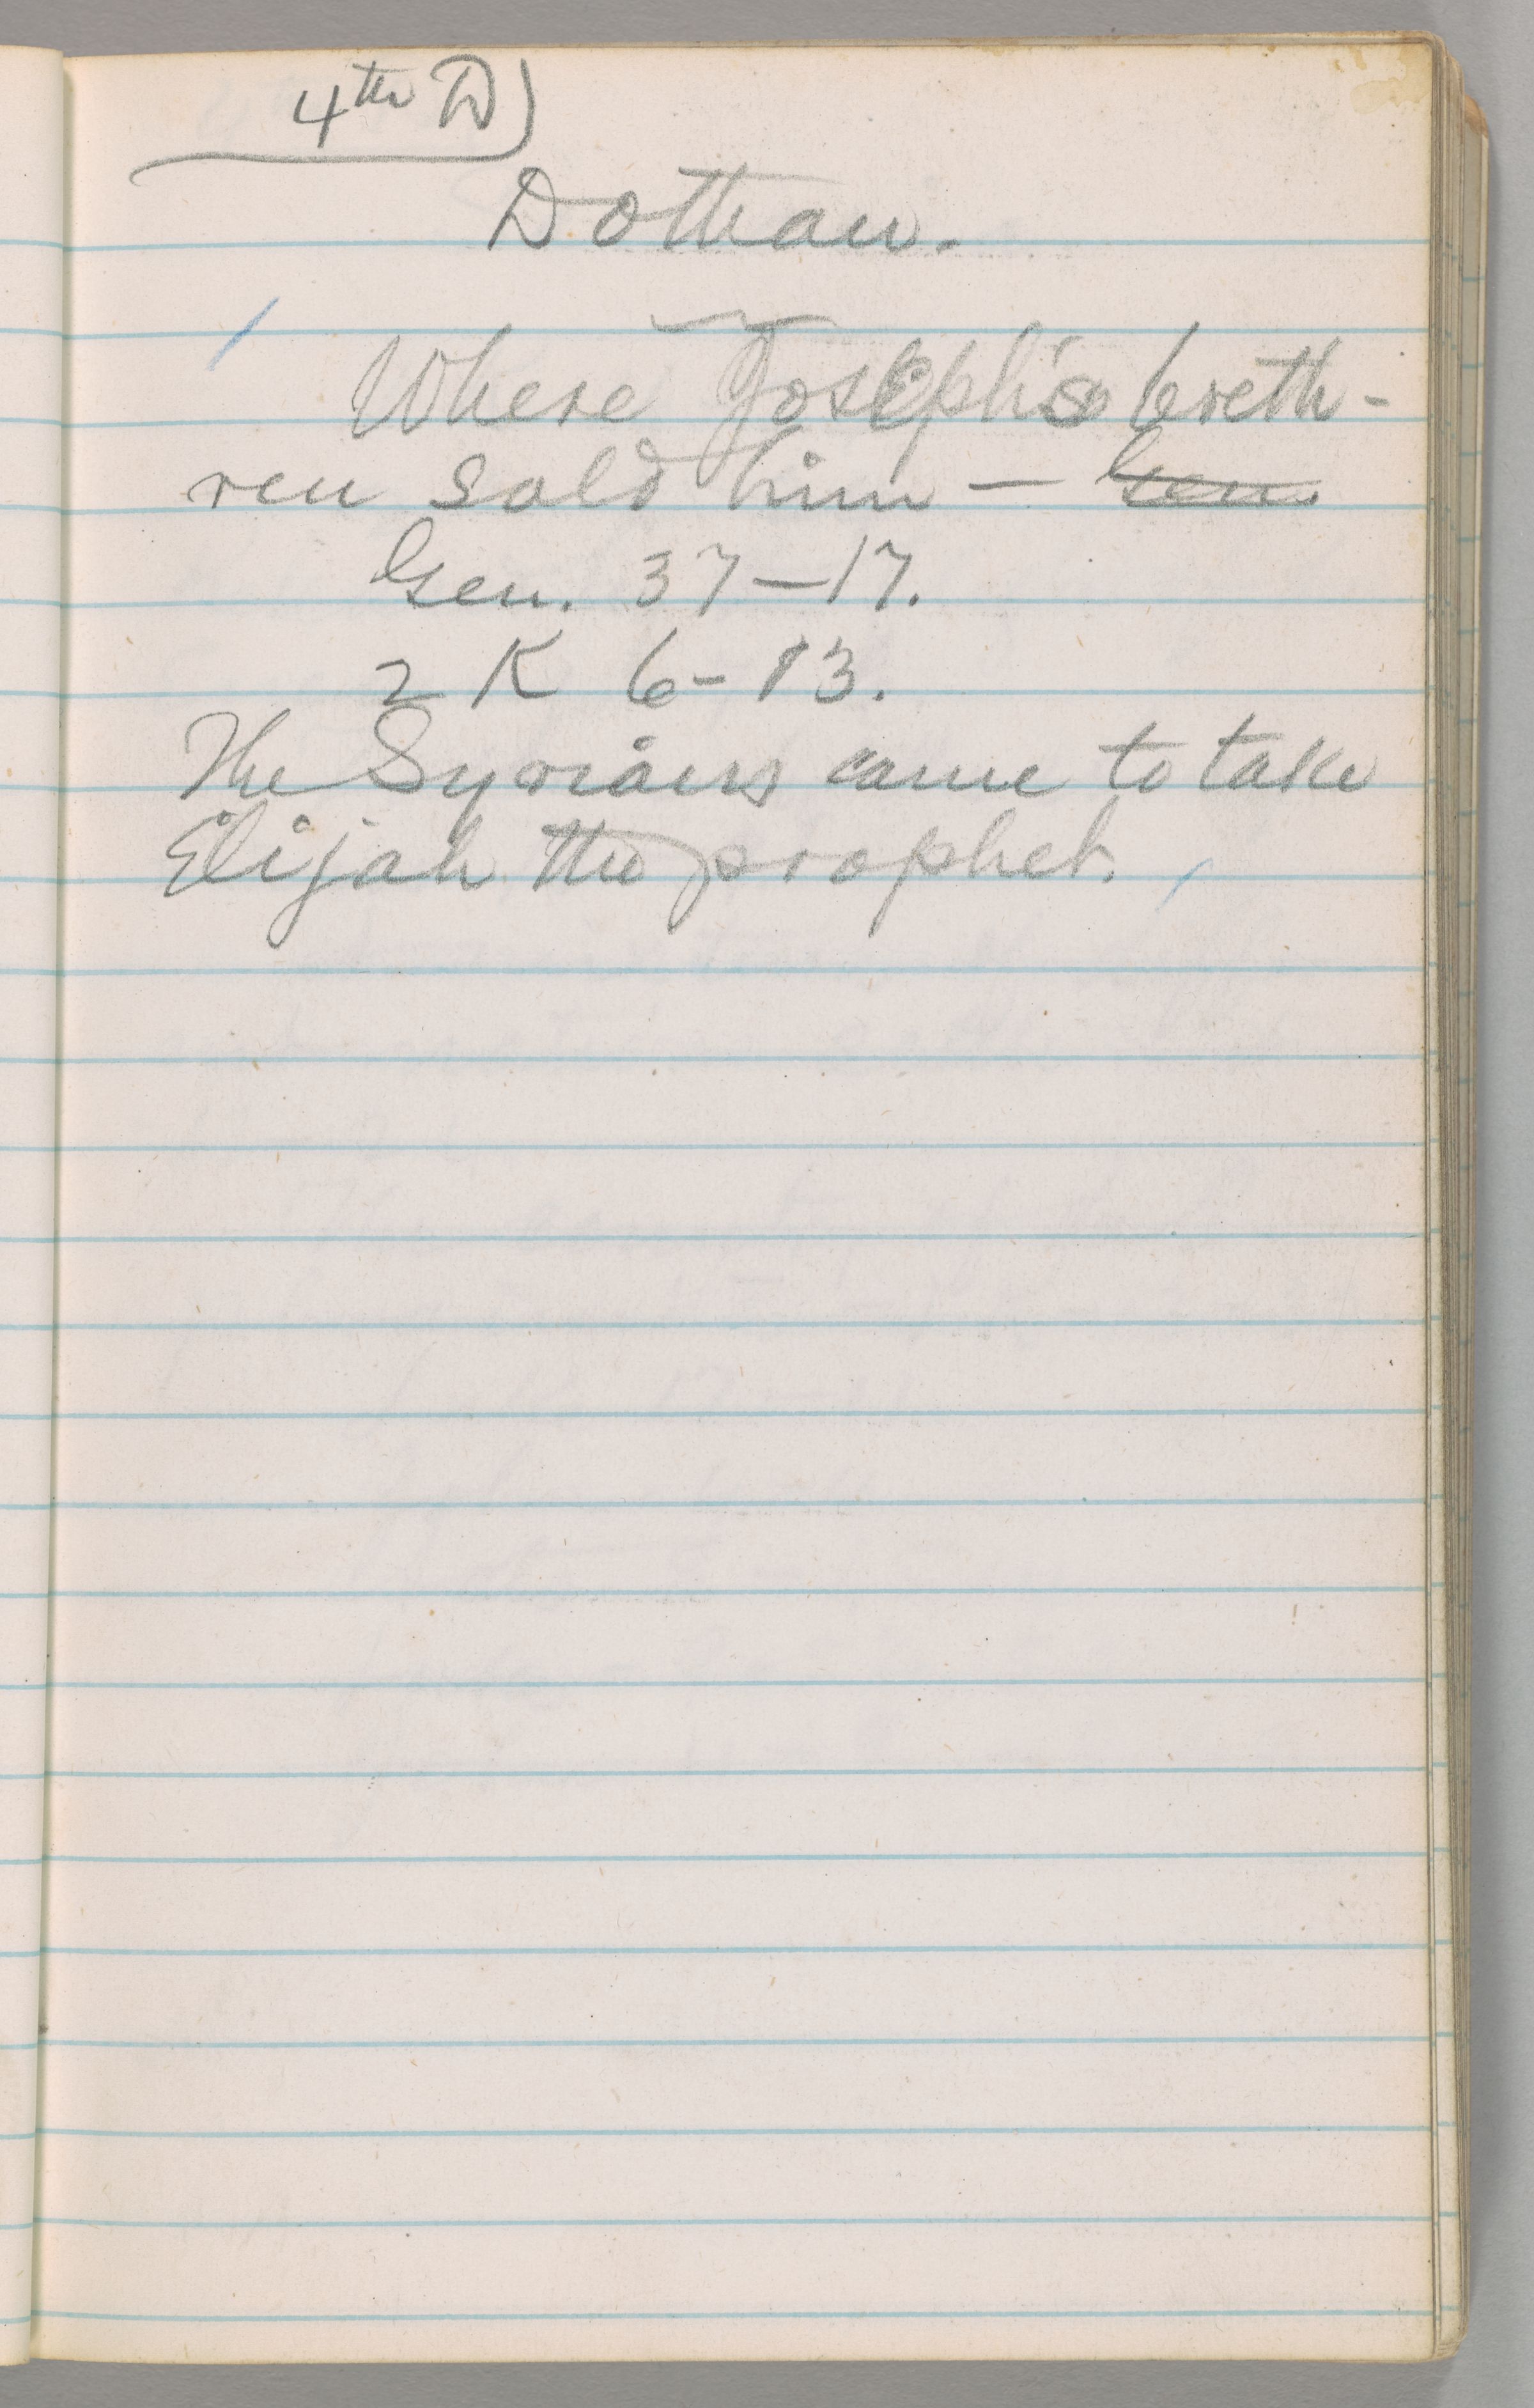 4th D
Dothan.
Where Joseph's breth-
ren sold him — Gen.
Gen. 37—17.
2 K 6-13.
The Syrians came to take
Elijah the prophet.